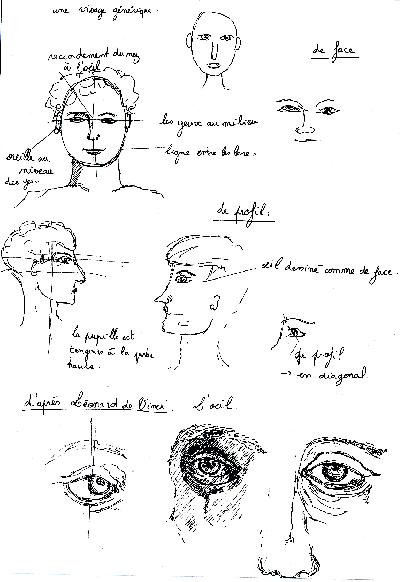 une visage générique.
de face
raccordement du nez
à l'œil
les yeux au milieu
ligne entre les
oreille au
niveau
des yeux.
de profil.
œil dessiné comme de face.
la pupille est
toujours à la partie
haute.
de profil
→ en diagonal
d'après Léonard de Vinci. L'œil.